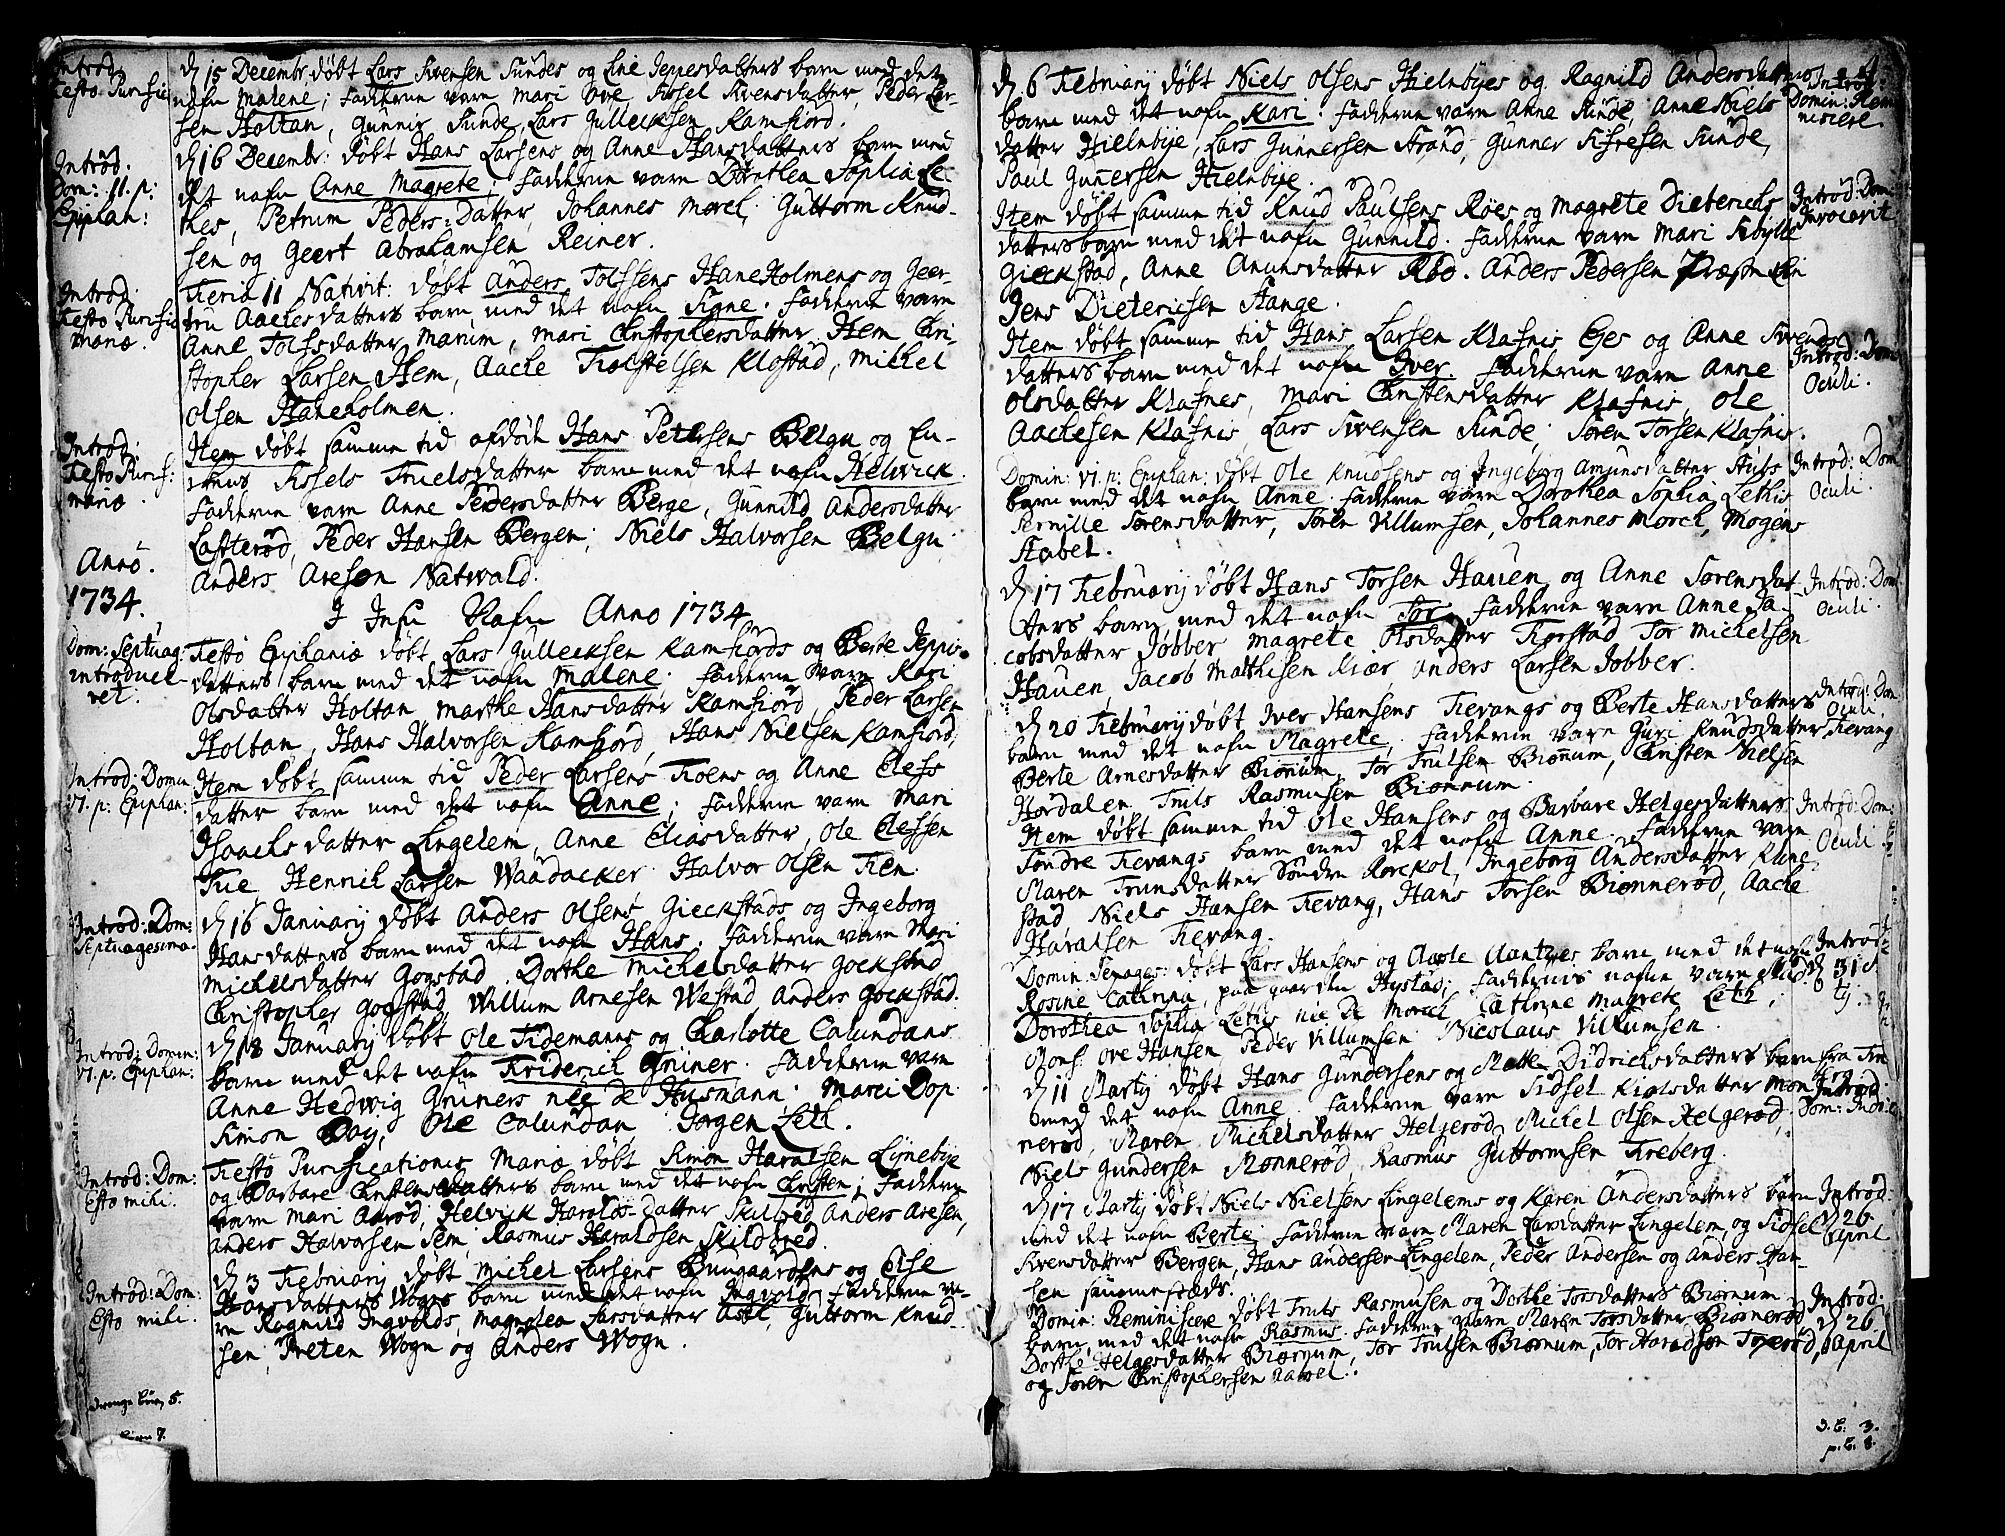 Introd.
Festo Purific
d 15 Decembr døbt Lars Svensen Sundes og Eine Jeppesdatters barn med det
nafn Malene; Fadderne varn Mari Ove, Sissel Svensdatter, Peder Lar-
sen Holtan, Gunnir Sunde, Lars Gullecksen Kamfiord.
Introd.
Dom: 11. p:
Epiphan:
d 16 Decembr: døbt Hans Larsens og Anne Hansdatters barn med
det nafn Anne Magrete; Fadderne varn Dorothea Sophia Le-
thes, Petrum Peders-Datter, Johannes Morel, Guttorm Knud-
sen og Geert Abrahamsen Reiner.
Introd.
Festo Purific
Mariæ.
Feria 11 Nativit: døbt Anders Tolfsens HaneHolmens og Geer-
tru Aachesdatters barn med det nafn Signe. Fadderne varn
Anne Tolfsdatter Marum, Mari Christophersdatter Hem, Chri-
stopher Larsen Hem, Aache Kloftad, Michel
Olsen Haneholmen.
Introd:
Festo Purif:
Mariæ.
Item døbt samme tid afdøde Hans Petersens Belgu og En-
kens Sissels Truelsdatter barn med det nafn Helvick.
Fadderne varn Anne Pedersdatter Berge, Gunnild Andersdatter
Lofterød, Peder Hansen Bergen; Niels Halvorsen Belgu
Anders Aresøn Natwald.
Anno.
1734.
I Jesu Nafn Anno 1734
Dom: Septuag
introducl-
vet.
Festo Epiphaniæ døbt Lars Gullecksen Kamfiords og Berte Jeppis-
datters barn med det nafn Malene. Fadderne varn Kari
Olsdatter Holtan Marthe Hansdatter Kamfiord, Peder Larsen
Holtan, Hans Halvorsen Kamfiord, Hans Nielsen Kamfiord;
Introd: Domin
VI. p: Epiphan:
Item døbt samme tid Peder Larsens Foens og Anne Clefs
datter barn med det nafn Anne; Fadderne varn Mari
Isaachsdatter Lingelem, Anne Eliasdatter, Ole Clefsen
Fue Henrich Larsen Waadacker Halvor Olsen Fien.
Introd: Dom:
Septuagesima.
d 16 Januarij døbt Anders Olsens Gieckstads og Ingeborg
Hansdatters barn med det nafn Hans. Fadderne varn Mari
Michelsdatter Gogstad. Dorthe Michelsdatter Gockstad
Christopher Gogstad, Willum Arnesen Westad Anders Gockstad.
Introd: Domin:
VI. p: Epiphan:
d 18 Januarij døbt Ole Tidemanns og Charlotte Calundans
barn med det nafn Friderich Grüner. Fadderne varn
Anne Hedwig Grüners née de Husmann. Marci Dop
Simon Bay, Ole Calundan Jorgen Leth.
Introd: Dom:
Esto mihi.
Festo Purificationis Mariæ døbt Simon Haralsen Lynebye
og Barbare Christensdatters barn med det nafn Christen; Fadderne
varn Mari Aarød, Helvick Harolds-Datter Skilbred Anders Aresen,
Anders Halvorsen Sem, Rasmus Haraldsen Skildbred.
Introd: Dom:
Esto mihi.
d 3 Februarij døbt Michel Larsens Bungaardens og Else
Hansdatters Wogns barn med det nafn Ingvold Fadderne va-
rn Ragnild Ingvolds, Magnolea Larsdatter Asel, Guttorm Knud-
sen, Preten Wogn og Anders Wogn.
drenge børn 5.
børn 7.
4.
d 6 Februarij døbt Niels Olsens Hielnbyes og Ragnild Andersdatters
barn med det nafn Kari. Fadderne varn Anne Sunde, Anne Niels
datter Hielnbye, Lars Gunnersen Strand, Gunner Sifresen Sunde,
Paul Gunnersen Hielnbye.
Introd:
Domin: Remi
niscere
Item døbt samme tid Knud Paulsens Røes og Magrete Dieterichs
dattersbarn med det nafn Gunnild. Fadderne varn Mari Sibylle
Gieckstad, Anne Anunsdatter Roe. Anders Pedersen
Jens Dieterichsen Stange.
Introd: Dom
Invocavit
Item døbt samme tid Hans Larsen Klafnis Eies og Anne Svends
datters barn med det nafn Iver. Fadderne varn Anne
Olsdatter Klafnes, Mari Christensdatter Klafnis, Ole
Aachesen Klafnis, Lars Svensen Sunde, Soren Torsen Klafnis.
Introd: Dom
Oculi.
Domin: VI. p: Epiphan: døbt Ole Knudsens og Ingeborg Amunsdatter Stubs
barn med det nafn Anne. Fadderne varn Dorothea Sophia Lethis
Pernille Sørensdatter, Søren Villumsen, Johannes Morch, Mogens
Stabel.
Introd: Dom
Oculi.
d 17 Februarij døbt Hans Torsen Hauen og Anne Sorensdat-
ters barn med det nafn Tor. Fadderne varn Anne Ja-
cobsdatter Jobber Magrete Olsdatter Fiorstad, Tor Michelsen
Hauen, Jacob Mathisen Kiær Anders Larsen Jobber.
Introd: Dom
Oculi.
d 20 Februarij døbt Iver Hansens Fievangs og Berte Hansdatters
barn med det nafn Magrete. Fadderne varn Guri Knudsdatter Fievang
Berte Arnesdatter Biønnum, Tor Trulsen Biønnum, Christen Nielsen
Hørdalen Truls Rasmusen Biønnum.
Introd: Dom
Oculi.
Item døbt samme tid Ole Hansens og Barbare Helgesdatters
Søndre Fievangs barn med det nafn Anne. Fadderne varn
Maren Trunsdatter Søndre Rørckol, Ingeborg Andersdatter Kline
stad Niels Hansen Fievang, Hans Torsen Biønnerød, Aache
Haralsen Fievang.
Introd: Dom:
Oculi.
Domin Sexages: døbt Lars Hansens og barn med det nafn
Rosine Cathrina, paa gaarden Hystad; Faddernis nafne varn
Dorothea Sophia Lethis née De Morch, Cathrine Magrete Leth,
Mons: Ove Hansen Peder Villumsen Nicolaus Villumsen.
Introd
d 31
d 11 Martij døbt Hans Gundersens og Mette Didrichsdatters barn
med det nafn Anne. Fadderne varn Sidsel Kiølsdatter Møn
nerød, Maren Michelsdatter Helgerød, Michel Olsen Helgerød,
Niels Gundersen Mønnerød, Rasmus Guttormsen Freberg.
Introd:
Dom:
d 17 Martij døbt Niels Nielsens Lingelems og Karen Andersdatters barn
med det nafn Berte Fadderne varn Maren Larsdatter Lingelem, og Sidsel
Svensdatter Bergen, Hans Andersen Lingelem, Peder Andersen og Anders Han-
sen sammesteds.
Introd:
d 26
April
Domin: Reminiscere døbt Truls Rasmusen og Dorthe Torsdatters Biønnum
barn, med det nafn Rasmus. Fadderne varn Maren Torsdatter Biønnerød
Dorthe Helgesdatter Biørnum, Tor Trulsen Biønnum, Tor Haradsen
og Søren Christophersen
Introd:
d 26
April
D. B. 3.
p. B. 8.